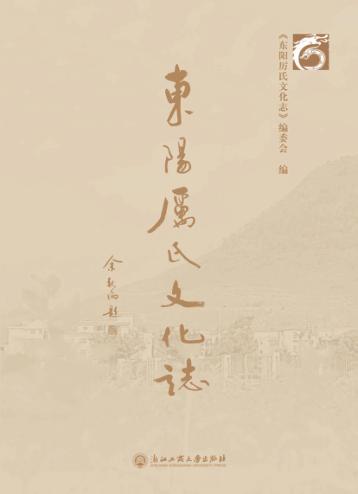 《东阳厉氏文化志》编委会 编
東陽厲氏文化誌
浙江工商大学出版社
ZHEJIANG GONGSHANG UNIVERSITY PRESS